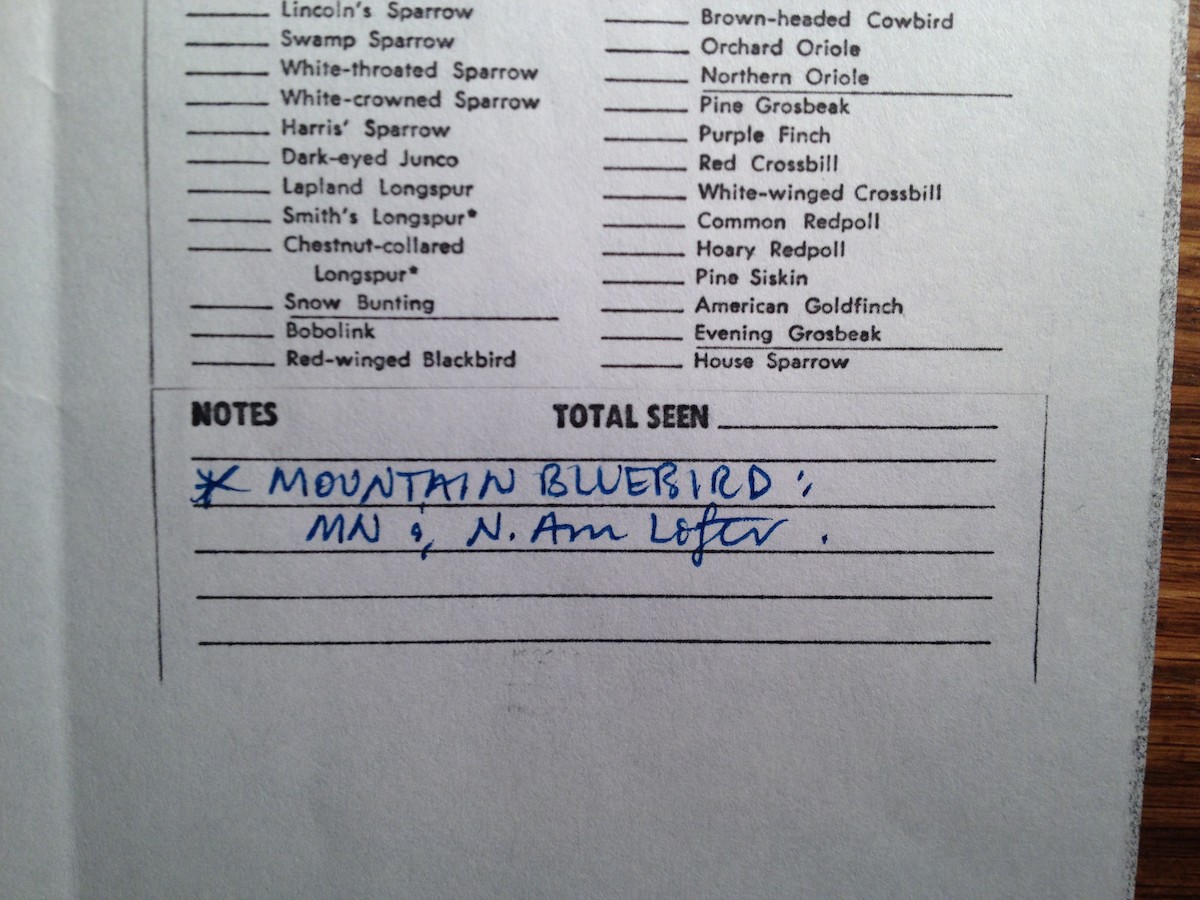 Lincoln's Sparrow
Swamp Sparrow
White-throated Sparrow
White-crowned Sparrow
Harris' Sparrow
Dark-eyed Junco
Lapland Longspur
Smith's Longspur*
Chestnut-collared
Longspur*
Snow Bunting
Bobolink
Red-winged Blackbird
Brown-headed Cowbird
Orchard Oriole
Northern Oriole
Pine Grosbeak
Purple Finch
Red Crossbill
White-winged Crossbill
Common Redpoll
Hoary Redpoll
Pine Siskin
American Goldfinch
Evening Grosbeak
House Sparrow
NOTES TOTAL SEEN
* MOUNTAIN BLUEBIRD :
MN & N. Am Lifer .